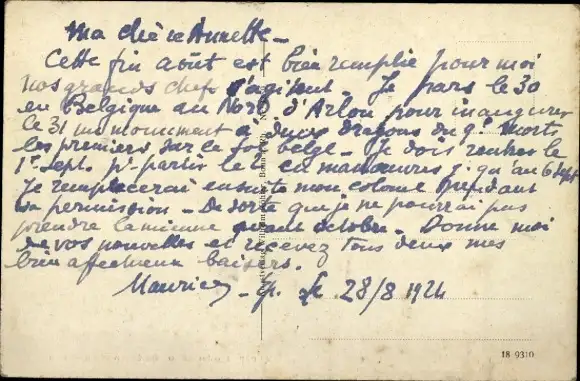 Ma chère Annette -
Cette fin août est bien remplie pour moi
nos grands chefs s'agitent. Je pars le 30
en Belgique au Nord d'Arlon pour inaugurer
le 31 un monument à deux dragons du 9e morts
les premiers sur le sol belge - Je dois rentrer le
1er sept. pr partir le 2 en manoeuvres j. qu'au 6 sept
Je remplacerai ensuite mon colonel pendant
sa permission - De sorte que je ne pourrai pas
prendre la mienne avant octobre. Donne moi
de vos nouvelles et recevez tous deux mes
bien affectueux baisers.
Maurice - le 28/8 1924
18 9310